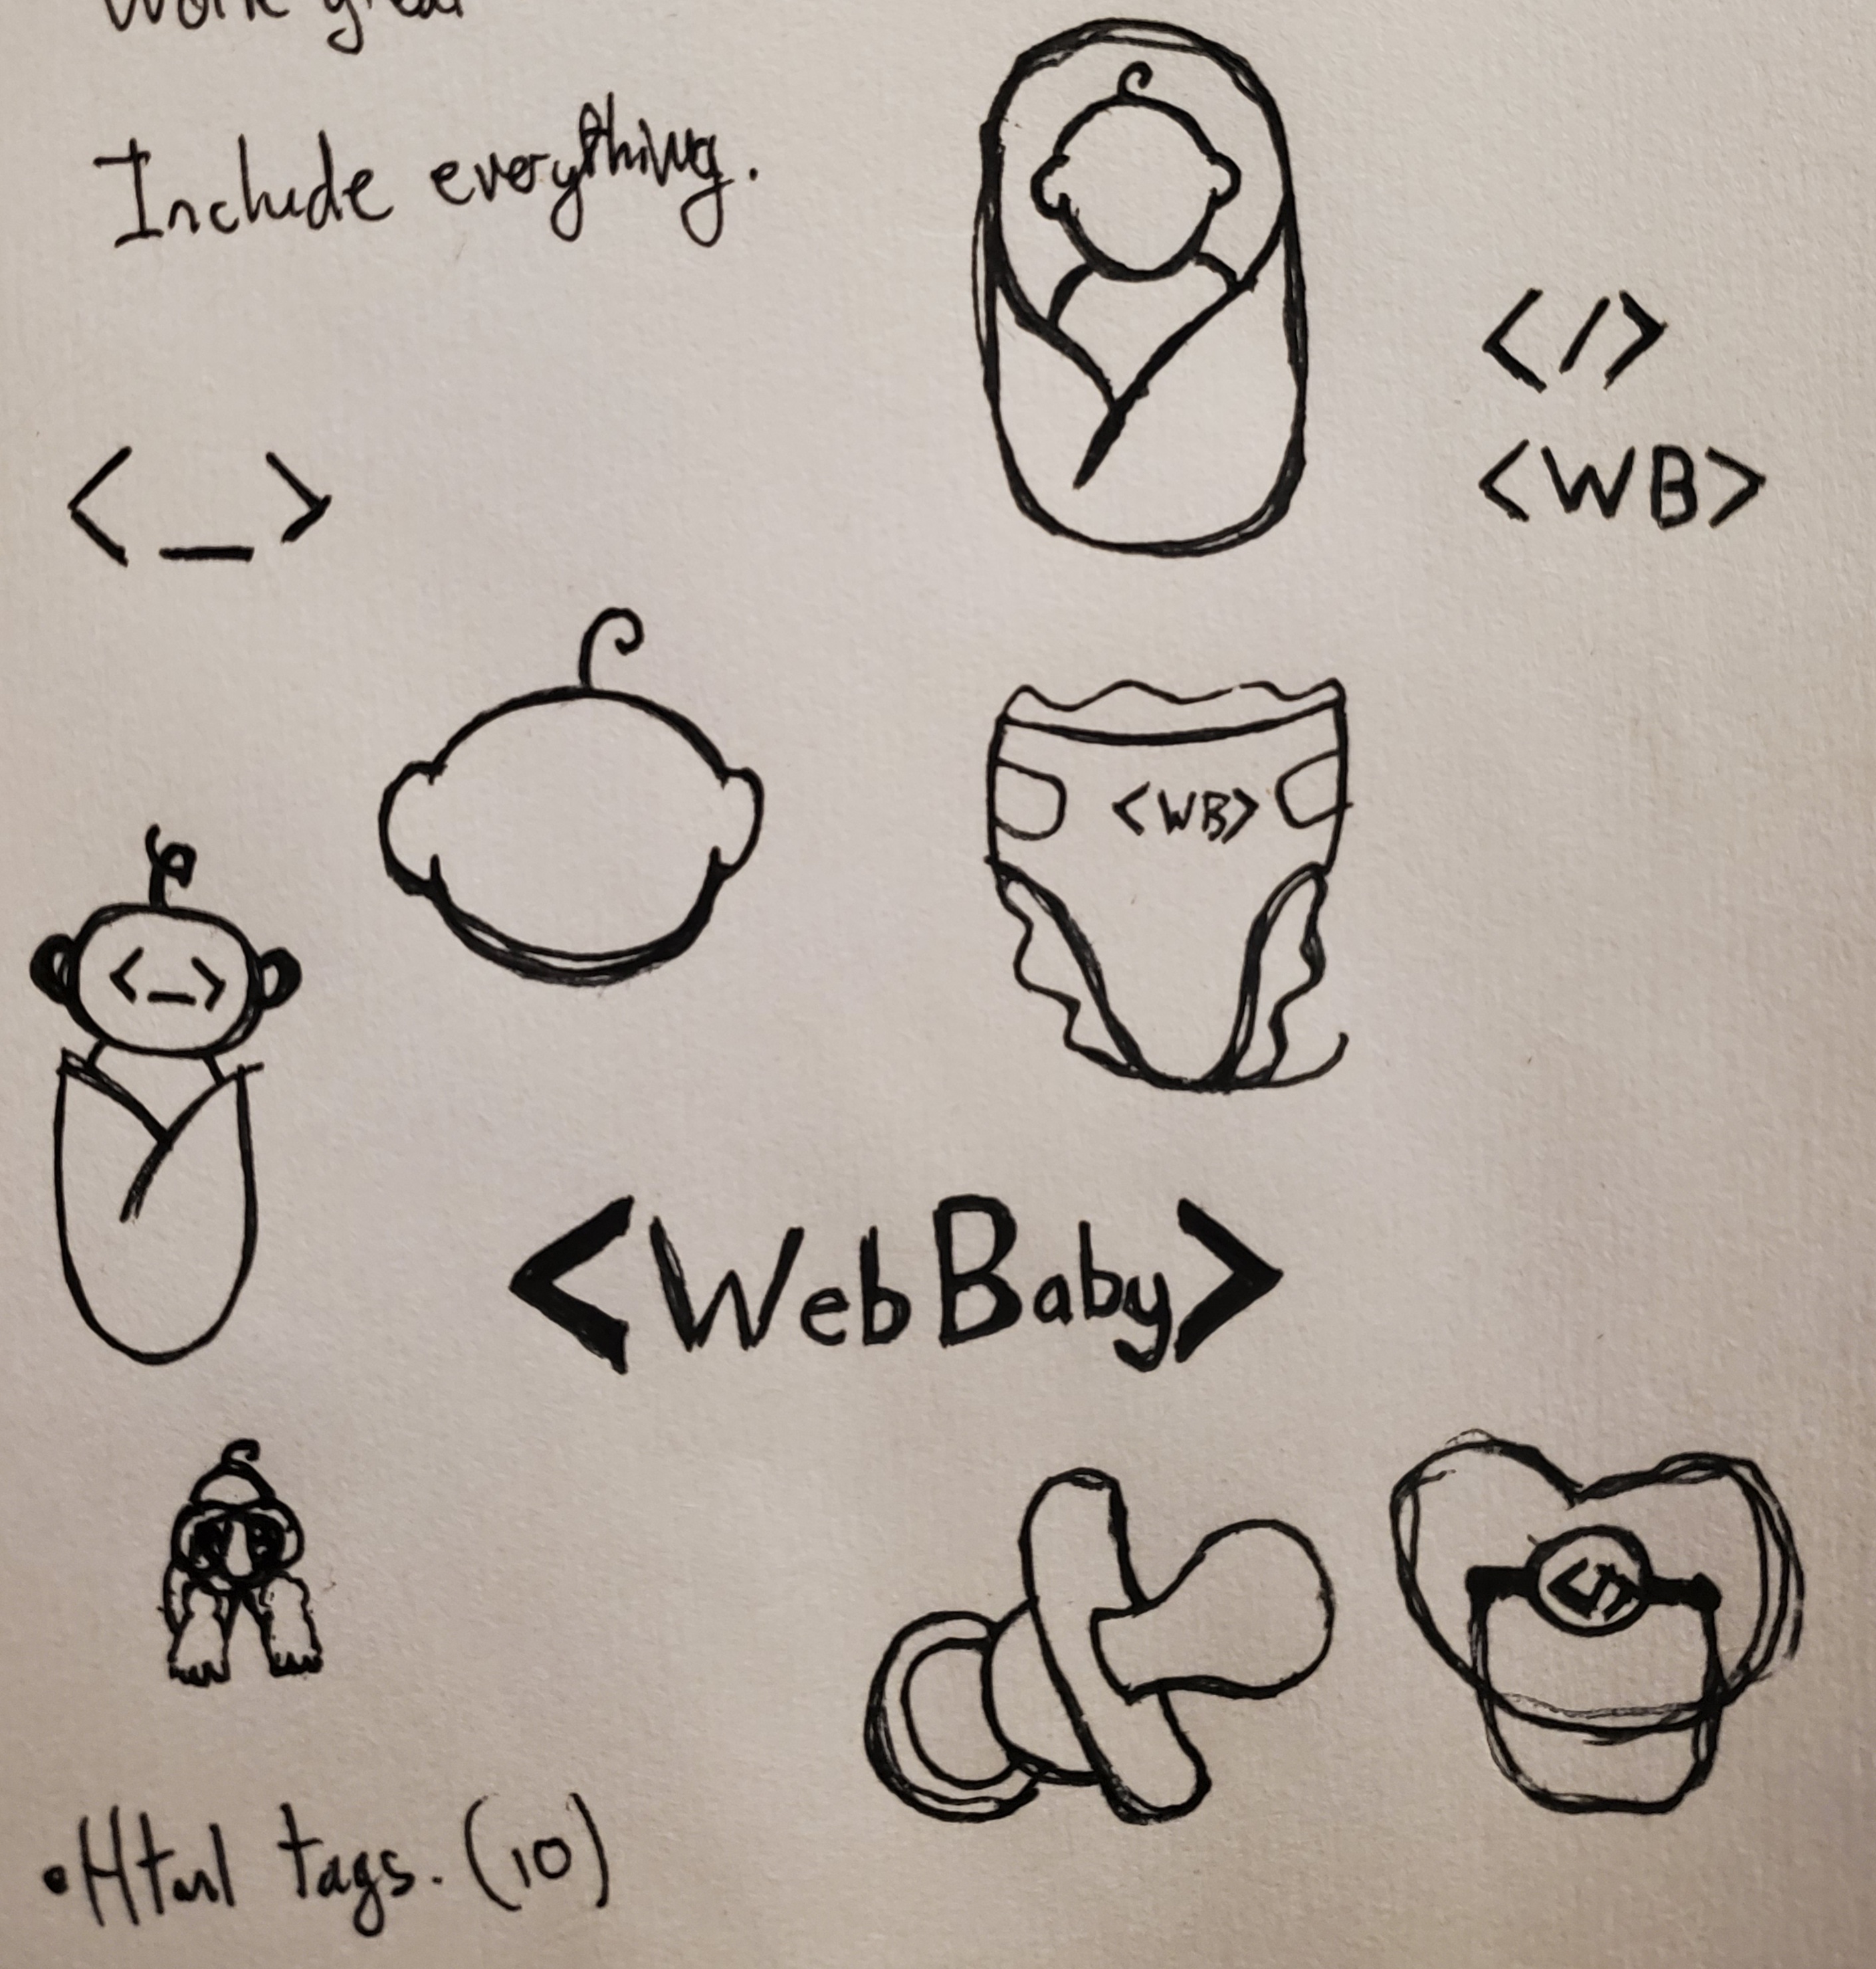 Work great
Include everything.
</>
<WB>
<_>
<WB>
<_>
<WebBaby>
</>
•Html tags. (10)